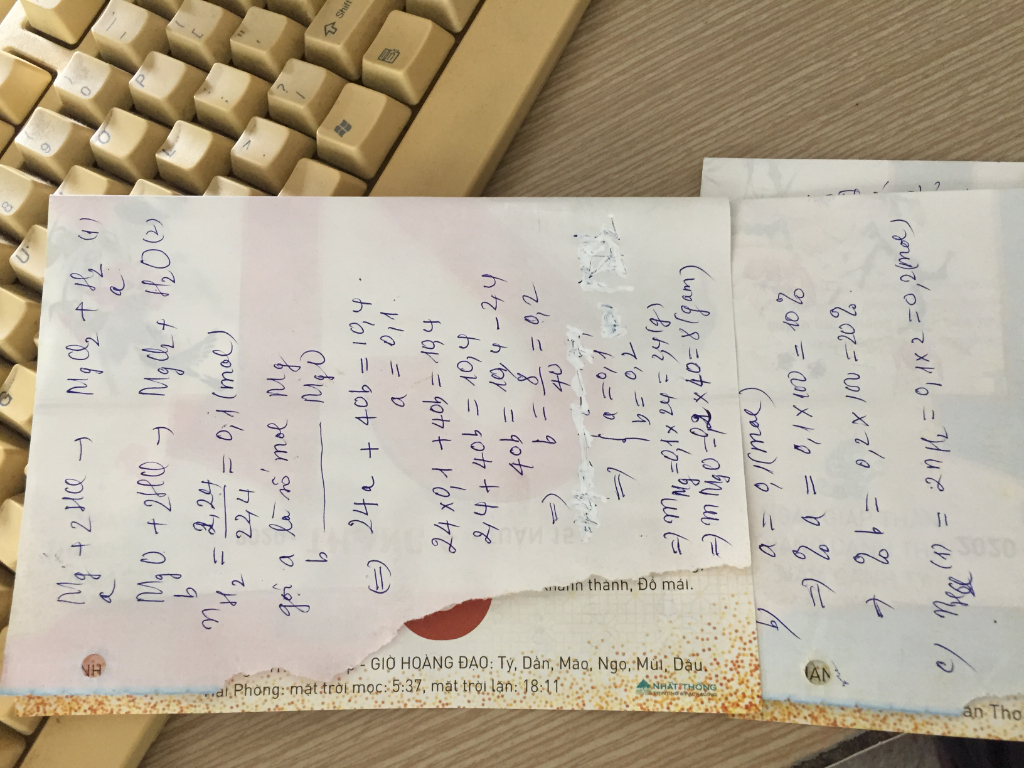 Mg + 2HCl → MgCl2 + H2 (1)
a a
MgO + 2HCl → MgCl2 + H2O (2)
b
nH2 = 2,24/22,4 = 0,1 (mol)
gọi a là số mol Mg
b ——— MgO
(=) 24a + 40b = 10,4.
a = 0,1.
24×0,1 + 40b = 10,4
2,4 + 40b = 10,4
40b = 10,4 - 2,4
=) b = 8/40 = 0,2
=) { a = 0,1
b = 0,2
=) mMg = 0,1 × 24 = 2,4 (g)
=) mMgO = 0,2 × 40 = 8 (gam)
b) a = 0,1 (mol)
=) % a = 0,1 × 100 = 10%
→ % b = 0,2 × 100 = 20%.
c) (1) = 2nH2 = 0,1 × 2 = 0,2 (mol)
thành thanh, Đỏ mái.
- GIỜ HOÀNG ĐẠO: Tý, Dần, Mão, Ngọ, Mùi, Dậu.
Phòng: mặt trời mọc: 5:37, mặt trời lặn: 18:11
NHẤT THÔNG
2020
TUẦN 15
Shift